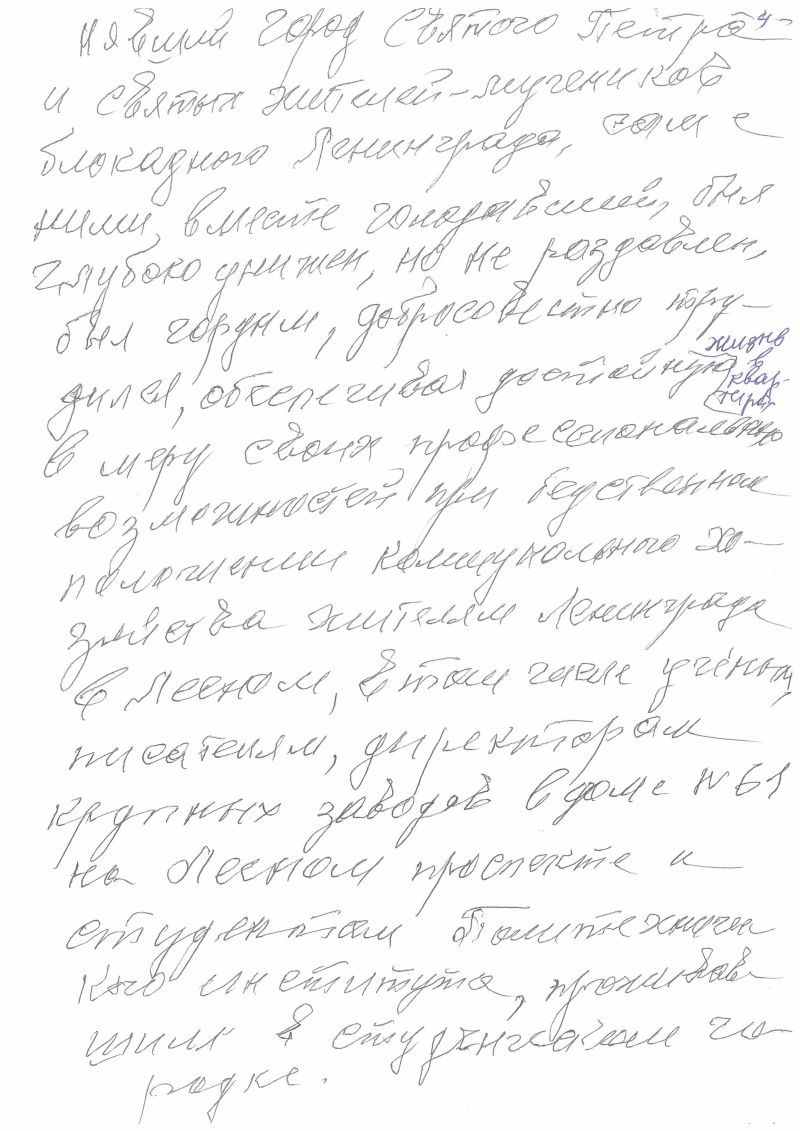 нявший город Святого Петра -4-
и святых жителей-мучеников
блокадного Ленинграда, сам с
ними вместе голодавший, был
глубоко унижен, но не раздавлен,
был гордым, добросовестно тру-
дился, обеспечивая достойную жизнь в квар-тирах
в меру своих профессиональных
возможностей при бедственном
положении коммунального хо-
зяйства жителям Ленинграда
в Лесном, в том числе учёным,
писателям, директорам
крупных заводов в доме N 61
на Лесном проспекте и
студентам Политехничес
кого института, проживав
шим в студенческом го-
родке.